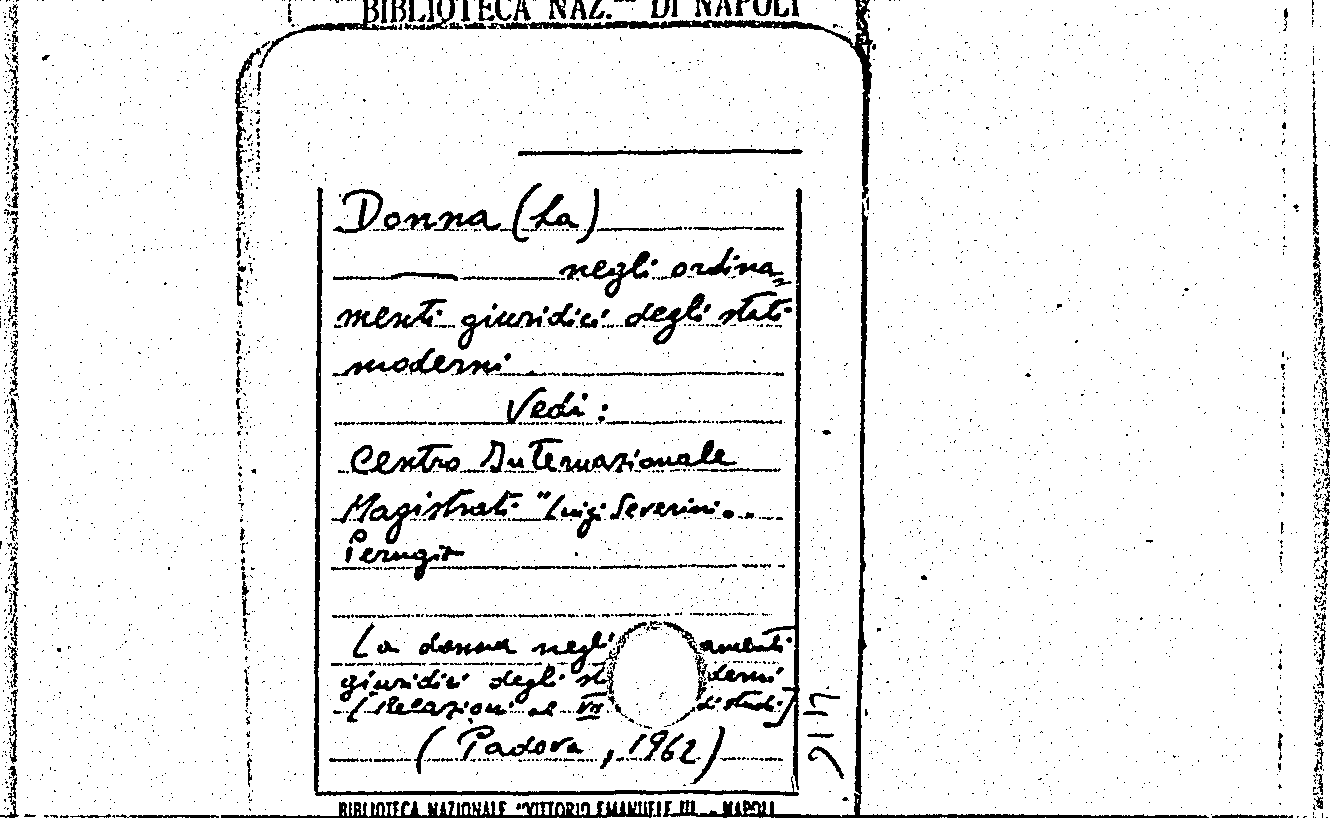 BIBLIOTECA NAZ. DI NAPOLI
Donna (La)
negli ordina
menti giuridici degli stati
moderni.
Vedi:
Centro Internazionale
Magistrati "Luigi Severini"
Perugia
La donna negli amenti
giuridici degli st derni
[Relazioni al VII di studi]
(Padova, 1962)
BIBLIOTECA NAZIONALE "VITTORIO EMANUELE III" - NAPOLI